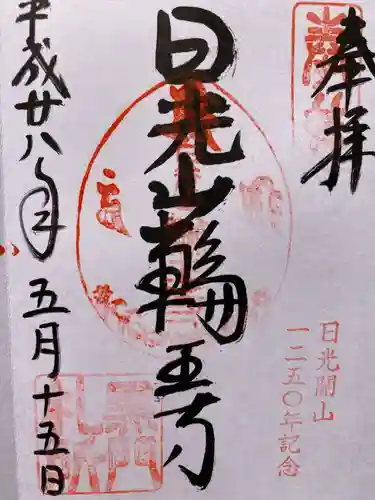 奉拝
日光開山
一二五〇年記念
日光山輪王寺
平成廿八年
五月十五日